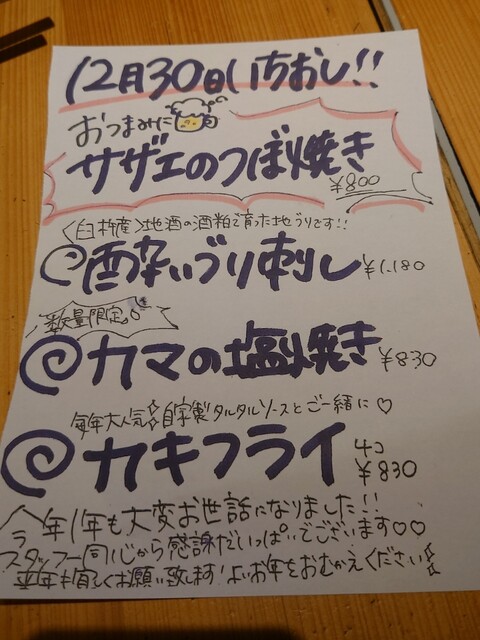 12月30日いちおし!!
おつまみに
サザエのつぼ焼き
¥800
〈臼杵産〉地酒の酒粕で育った地ぶりです!!
@酔いブリ刺し ¥1,180
数量限定。
@カマの塩焼き ¥830
毎年大人気☆自家製タルタルソースとご一緒に♡
@カキフライ 4コ ¥830
今年1年も大変お世話になりました!!
スタッフ一同心から感謝だいっぱいでございます♡♡
来年も宜しくお願い致します!よいお年をおむかえください